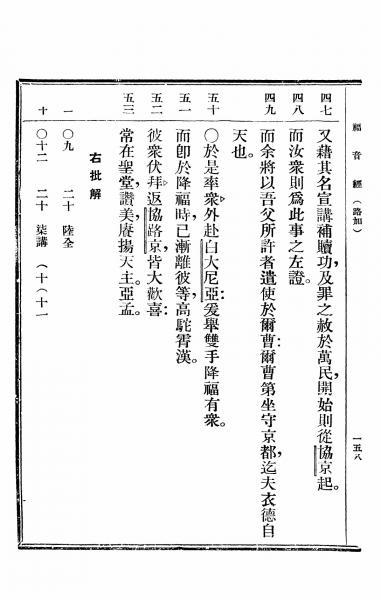 福音經（路加）
一五八
四七 又藉其名宣講補贖功，及罪之赦於萬民，開始則從協京起。
四八 而汝衆則爲此事之左證。
四九 而余將以吾父所許者遣使於爾曹：爾曹第坐守京都，迄夫衣德自
天也。
五十 〇於是率衆外赴白大尼亞：爰舉雙手降福有衆。
五一 而卽於降福時已漸離彼等，高駝霄漢。
五二 彼衆伏拜返協路京，皆大歡喜：
五三 常在聖堂，讚美，賡揚天主。亞孟。
右批解
一 〇九 二十 陸全
十 〇十二 二十 柒講（十（十一